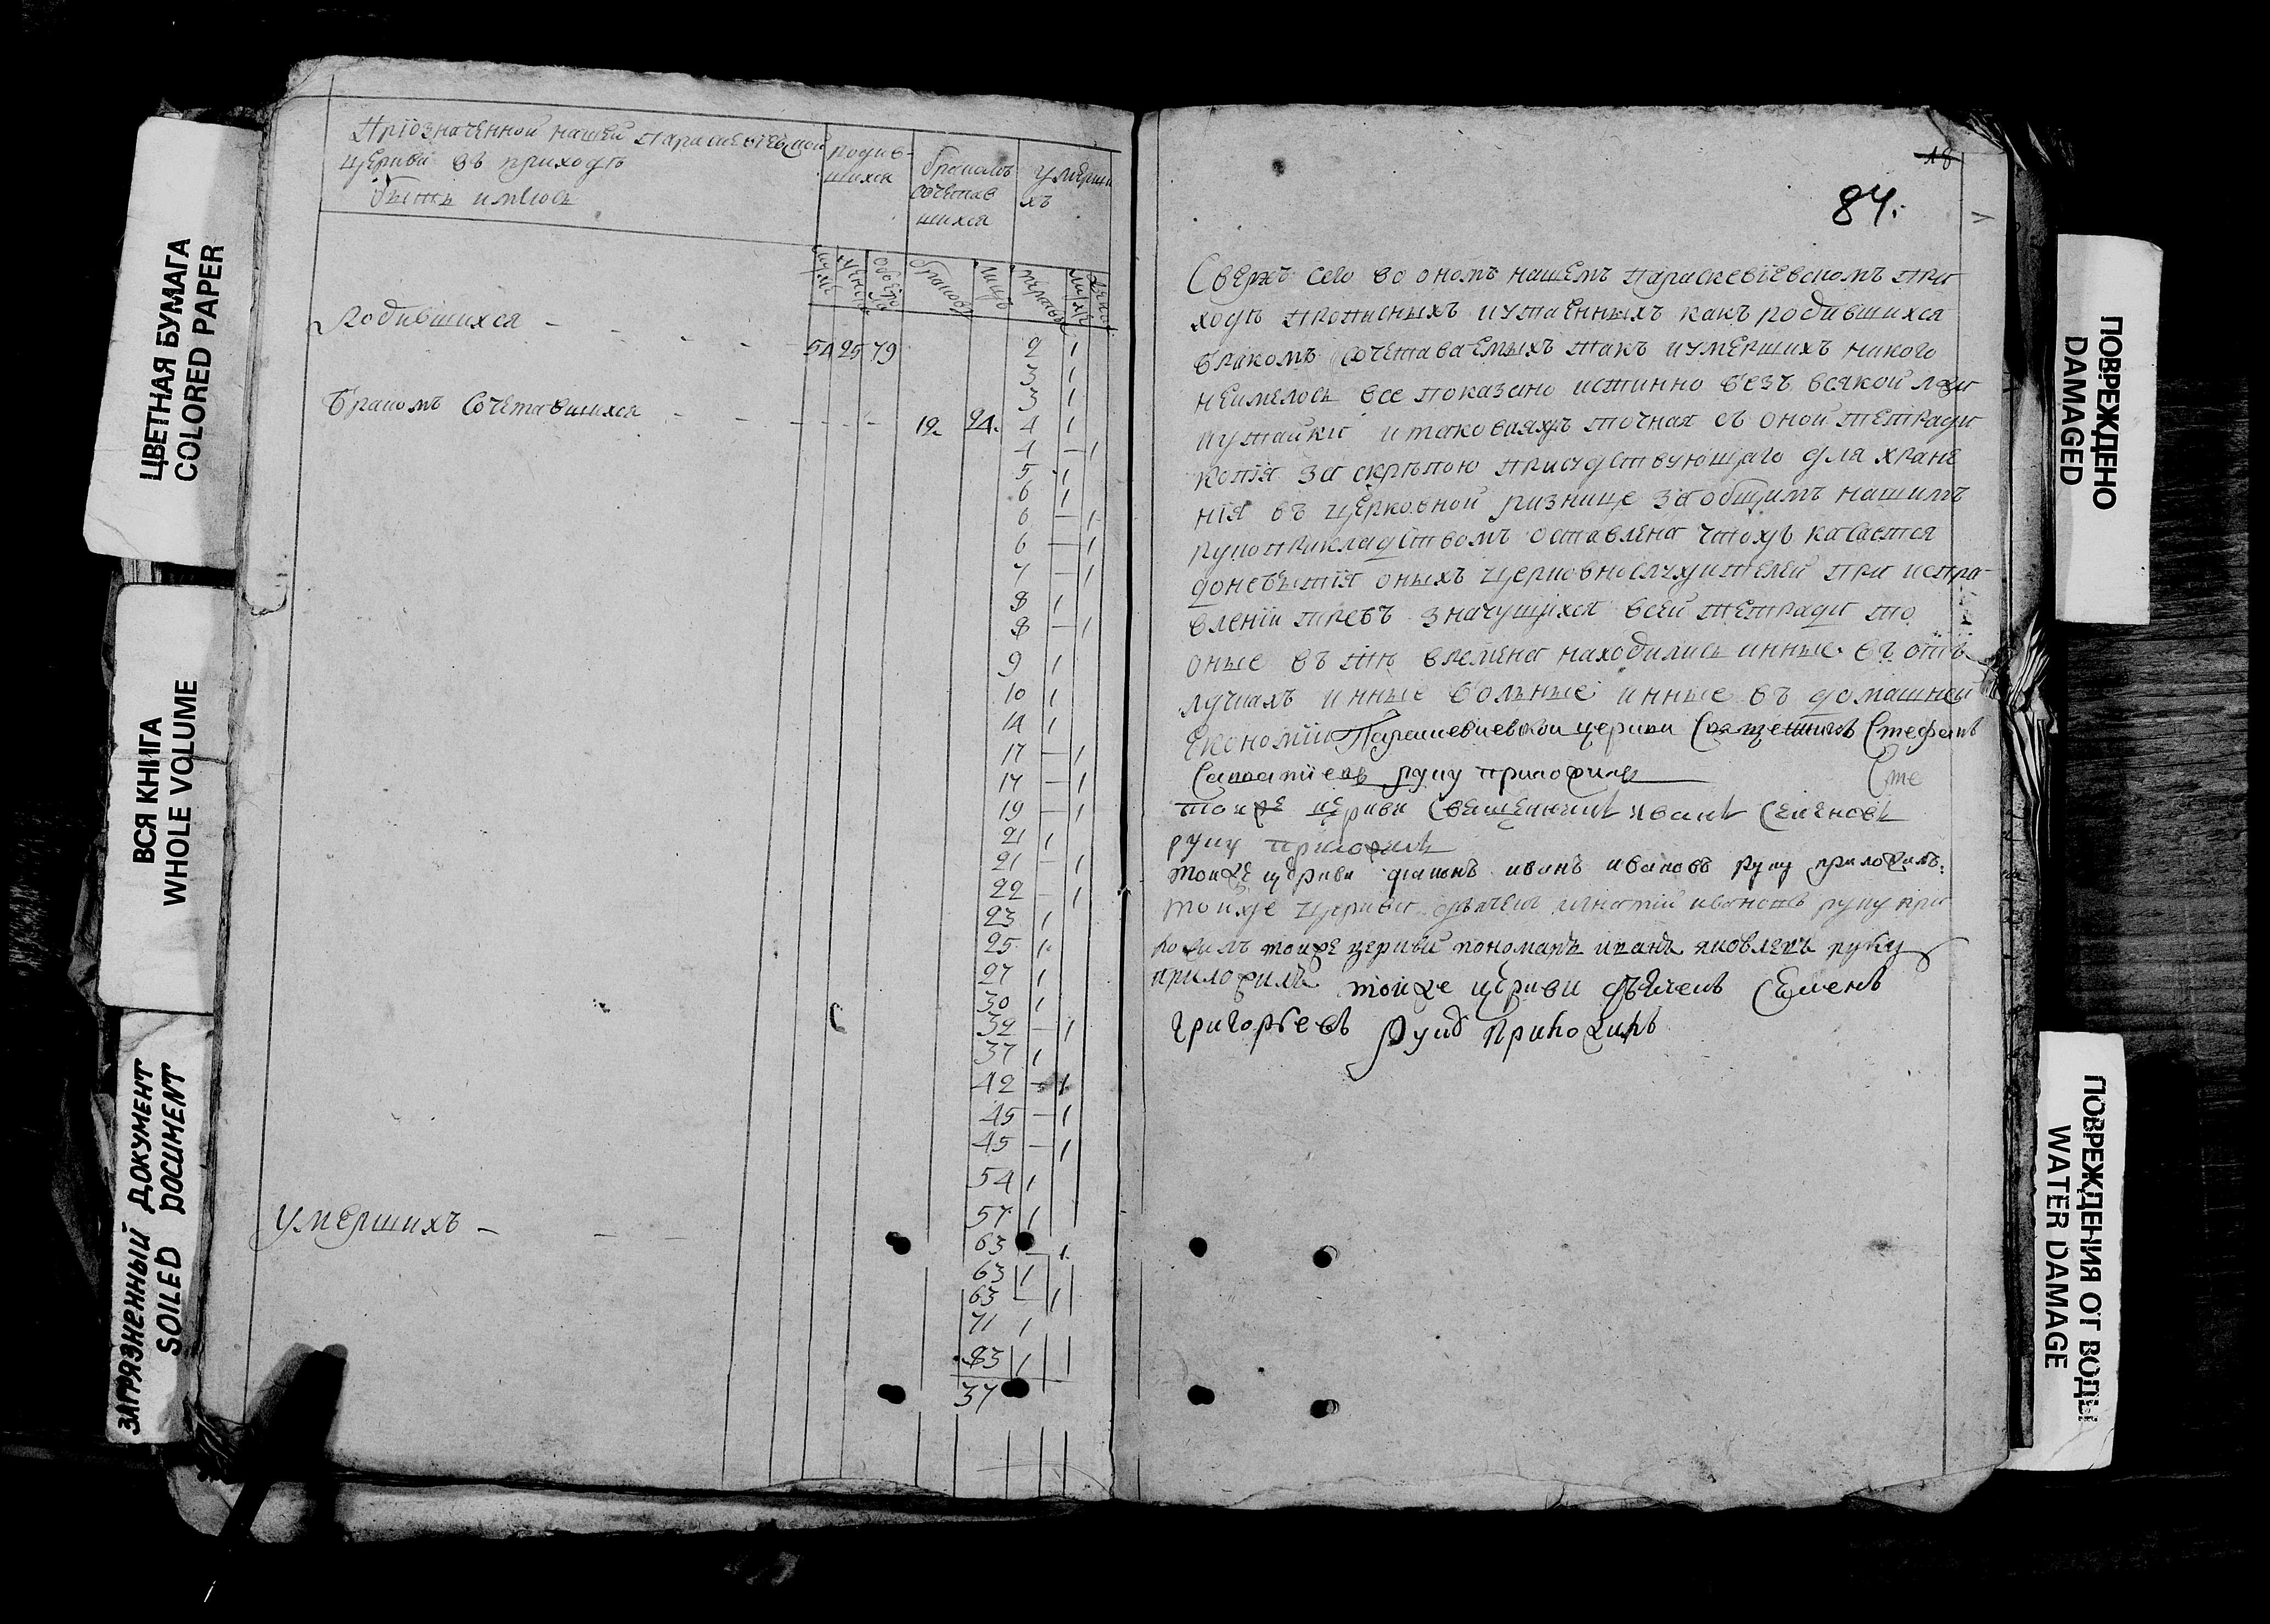 ЦВЕТНАЯ БУМАГА
COLORED PAPER
ВСЯ КНИГА
WHOLE VOLUME
ЗАГРЯЗНЕННЫЙ ДОКУМЕНТ
SOILED DOCUMENT
При означенной нашей Параскевиевской
церкви въ приходѣ
бысть имелось
родив-
шихся
бракомъ
сочетав
шихся
умерши
хъ
Родившихся - - - - -
54 25 79
Бракомъ сочетавшихся - - - - -
12. 24.
2 1
3 1
3 1
4 1
4 — 1
5 1
6 1
6 — 1
6 — 1
7 — 1
8 1
8 — 1
9 1
10 1
14 1
17 — 1
17 — 1
19 — 1
21 1
21 — 1
22 — 1
23 1
25 1
27 1
30 1
32 — 1
37 1
42 — 1
45 — 1
45 — 1
54 1
57 1
Умершихъ - - -
63 — 1
63 1
63 — 1
71 1
83 1
37
18
84.
Сверхъ сего во ономъ нашемъ Параскевіевскомъ при
ходѣ прописныхъ и утаенныхъ какъ родившихся
бракомъ сочетаваемыхъ такъ и умершихъ никого
неимелось все показано истинно безъ всякой лжи
и утайки и таковаяжъ точная съ оной тетради
копія за скрѣпою присудствующаго для хране
нія въ церковной ризнице за общимъ нашимъ
рукоприкладствомъ оставлена чтожъ касается
до небытія оныхъ церковнослужителей при испра-
вленіи требъ значущихся всей тетради то
оные въ тѣ времена находились инные въ отъ
лучкахъ инные больные инные въ домашней
економіи Параскевиевской церкви Священникъ Стефанъ
руку приложилъ Сте
тойже церкви Священникъ Иванъ Семеновъ
руку приложилъ
тойже церкви диаконъ иванъ ивановъ руку приложилъ:
тойже церкви дьячекъ игнатій ивановъ руку при
ложилъ тойже церкви пономарь иванъ яковлевъ руку
приложилъ тойже церкви дьячекъ Семенъ
григорьевъ руку приложилъ
ПОВРЕЖДЕНО
DAMAGED
ПОВРЕЖДЕНИЯ ОТ ВОДЫ
WATER DAMAGE